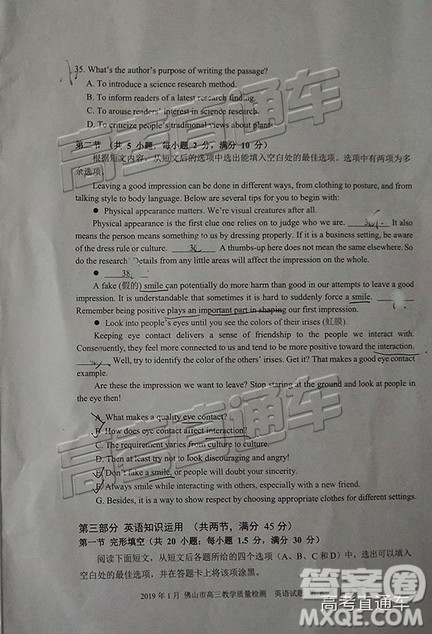 35. What's the author's purpose of writing the passage?
A. To introduce a science research method.
B. To inform readers of a latest research finding.
C. To arouse readers' interest in science research.
D. To criticize people's traditional views about plants.
第二节 (共 5 小题, 每小题 2 分, 满分 10 分)
根据短文内容, 从短文后的选项中选出能填入空白处的最佳选项。选项中有两项为多
余选项。
Leaving a good impression can be done in different ways, from clothing to posture, and from
talking style to body language. Below are several tips for you to begin with:
● Physical appearance matters. We're visual creatures after all.
Physical appearance is the first clue one relies on to judge who we are. It also
means the person means something to us by dressing properly. If it is a business setting, be aware
of the dress rule or culture. A thumbs-up here does not mean the same elsewhere. So
do the research! Details from any little things will leave an impression on others.
● 38.
A fake (假的) smile can potentially do more harm than good in our attempts at leaving a good
impression. It is understandable that sometimes it is hard to suddenly force a smile.
Remember being positive plays an important part in shaping our first impression.
● Look into people's eyes until you see the colors of their irises (虹膜).
Keeping eye contact delivers a sense of friendship to the people we interact with.
Consequently, they feel more connected to us and tend to be more positive toward the interaction.
Well, try to identify the color of the others' irises. Get it? That makes a good eye contact
example.
Are these the impression we want to leave? Stop staring at the ground and look at people in
the eye then!
A. What makes a quality eye contact?
B. How does eye contact affect interaction?
C. The requirement varies from culture to culture.
D. Then at least try not to look discouraging and angry!
E. Don't fake a smile, or people will doubt your sincerity.
F. Always smile while interacting with others, especially with a new friend.
G. Besides, it is a way to show respect by choosing appropriate clothes for different settings.
第三部分 英语知识运用 (共两节, 满分 45 分)
第一节 完形填空 (共 20 小题; 每小题 1.5 分, 满分 30 分)
阅读下面短文, 从短文后各题所给的四个选项 (A、B、C 和 D) 中, 选出可以填入
空白处的最佳选项, 并在答题卡上将该项涂黑。
2019 年 1 月 佛山市高三教学质量检测 英语试题
高考直通车
高考直通车
高考直通车
答案圈
高考直通车